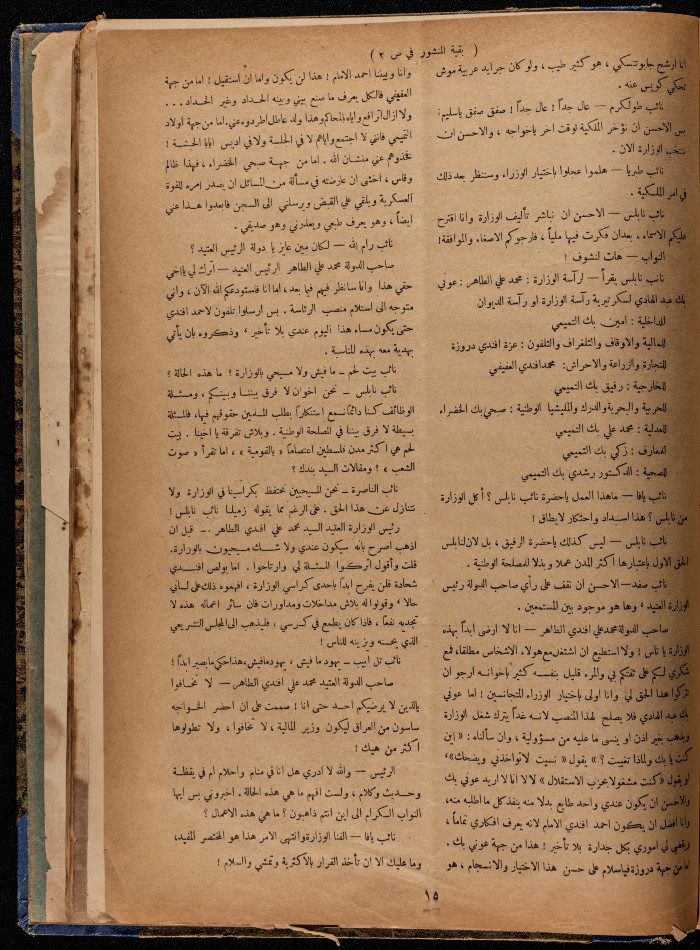 ( بقية المنشور في ص ٢ )
انا ارشح جابوتنسكي ، هو كثير طيب ، ولو كان جرايد عربية موش
تحكي كويس عنه .
نائب طولكرم — عال جداً ! عال جدا ! صفق صفق ياسليم :
بس الاحسن ان نؤخر الملكية لوقت اخر ياخواجه ، والاحسن ان
ننتخب الوزارة الان .
نائب طبريا — هلموا عجلوا باختيار الوزراء وسننظر بعد ذلك
في امر الملكية .
نائب نابلس — الاحسن ان نباشر تأليف الوزارة وانا اقترح
عليكم الاسماء ، بعدان فكرت فيها ملياً ، فارجوكم الاصغاء والموافقة !
النواب — هات لنشوف !
نائب نابلس يقرأ — لرآسة الوزارة : محمد علي الطاهر : عوني
بك عبد الهادي لسكرتيرية رآسة الوزارة او رآسة الديوان
للداخلية : امين بك التميمي
للمالية والاوقاف والتلغراف والتلفون : عزة افندي دروزة
للتجارة والزراعة والاحراش: محمدافندي العفيفي
للخارجية : رفيق بك التميمي
للحربية والبحرية والدرك والمليشيا الوطنية : صبحي بك الخضراء
للعدلية : محمد علي بك التميمي
للمعارف : زكي بك التميمي
للصحية : الدكتور رشدي بك التميمي
نائب يافا — ماهذا العمل ياحضرة نائب نابلس ؟ أكل الوزارة
من نابلس ؟ هذا استبداد واحتكار لايطاق !
نائب نابلس — ليس كذلك ياحضرة الرفيق ، بل لان لنابلس
الحق الاول باعتبارها أكثر المدن عملا وبذلا للمصلحة الوطنية .
نائب صفد — الاحسن ان نقف على رأي صاحب الدولة رئيس
الوزارة العتيد ، وها هو موجود بين المستمعين .
صاحب الدولة محمد علي افندي الطاهر — انا لا ارضى ابداً بهذه
الوزارة يا ناس ! ولا استطيع ان اشتغل مع هولاء الاشخاص مطلقا، فمع
شكري لكم على ثقتكم بي والمرء قليل بنفسه كثير باخوانه ارجو ان
تتركوا هذا الحق لي وانا اولى باختيار الوزراء المتجانسين ! اما عوني
بك عبد الهادي فلا يصلح لهذا المنصب لانه غداً يترك شغل الوزارة
ويذهب بغير اذن او ينسى ما عليه من مسؤولية ، وان سألناه : « اين
كنت يا بك ولماذا تغيبت ؟ » يقول « نسيت لاتواخذني ويضحك » ،
او يقول « كنت مشغولا بحزب الاستقلال » لا لا انا لا اريد عوني بك
والاحسن ان يكون عندي واحد طايع بدلا منه ينفذكل ما اطلبه منه،
وانا افضل ان يكون احمد افندي الامام لانه يعرف افكاري تماماً ،
ويقضي لي اموري بكل جدارة بلا تأخير ! هذا من جهة عوني بك .
اما من جهة دروزة فياسلام على حسن هذا الاختيار والانسجام ، هو
وانا وبيننا احمد الامام ! هذا لن يكون واما ان استقيل ! اما من جهة
العفيفي فالكل يعرف ما صنع بيني وبينه الحداد وغير الحداد . . .
ولا ازال اترافع واياه بالمحاكم وهذا ولد عاطل اطردوه عني. اما من جهة اولاد
التميمي فانني لا اجتمع واياهم لا في الجلسة ولا في اديس ابابا الحبشة !
فخذوهم عني منشان الله . اما من جهة صبحي الخضراء ، فهذا ظالم
وقاس ، اخشى ان عارضته في مسألة من المسائل ان يصدر امره للقوة
العسكرية ويلقي علي القبض ويرسلني الى السجن فابعدوا هذا عني
ايضاً ، وهو يعرف طبعي ويعذرني وهو صديقي .
نائب رام الله — لكان مين عايز يا دولة الرئيس العتيد ؟
صاحب الدولة محمد علي الطاهر الرئيس العتيد — اترك لي يااخي
حقي هذا وانا سانظر فيهم فيما بعد، اما انا فاستودعكم الله الآن ، واني
متوجه الى استلام منصب الرئاسة . بس ارسلوا تلفون لاحمد افندي
حتى يكون مساء هذا اليوم عندي بلا تأخير ، وذكروه بان يأتي
بهدية معه بهذه المناسبة .
نائب بيت لحم — مافيش ولا مسيحي بالوزارة ؟ ما هذه الحالة ؟
نائب نابلس — نحن اخوان لا فرق بيننا وبينكم ، ومسئلة
الوظائف كنا دائما نسمع استنكاراً بطلب المسلمين حقوقهم فيها، فالمسئلة
بسيطة لا فرق بيننا في المصلحة الوطنية . وبلاش تفرقة يا اخينا . بيت
لحم هي اكثر مدن فلسطين اعتصاماً « بالقومية » ، اما تقرأ « صوت
الشعب » ؟ ومقالات السيد بندك ؟
نائب الناصرة — نحن المسيحيين نحتفظ بكراسينا في الوزارة ولا
نتنازل عن هذا الحق . على الرغم مما يقوله زميلنا نائب نابلس !
رئيس الوزارة العتيد السيد محمد علي افندي الطاهر — قبل ان
اذهب اصرح بانه سيكون عندي ولا شك مسيحيون بالوزارة.
قلت وأقول اتركوا المسئلة لي وارتاحوا . اما بولص افندي
شحادة فلن يفرح ابداً باحدى كراسي الوزارة ، افهموه ذلك على لساني
حالا ، وقولوا له بلاش مداخلات ومداورات فان سائر اعماله هذه لا
تجديه نفعاً ، فاذا كان يطمع في كرسي ، فليذهب الى المجلس التشريعي
الذي يحسنه ويزينه للناس !
نائب تل ابيب — يهود مافيش ، يهود مافيش، هذا حكي مابصير ابداً !
صاحب الدولة العتيد محمد علي افندي الطاهر — لا تخافوا
يالذين لا يرضيكم احد حتى انا ! صممت على ان احضر الخواجه
ساسون من العراق ليكون وزير المالية ، لا تخافوا ، ولا تطولوها
اكثر من هيك !
الرئيس — والله لا ادري هل انا في منام واحلام ام في يقظة
وحديث وكلام ، ولست افهم ما هي هذه الحالة . اخبروني بس ايها
النواب السكرام الى اين انتم ذاهبون ؟ ما هي هذه الاعمال ؟
نائب يافا — الفنا الوزارة وانتهى الامر هذا هو المختصر المفيد،
وما عليك الا ان تأخذ القرار بالاكثرية وتمشي والسلام !
١٥